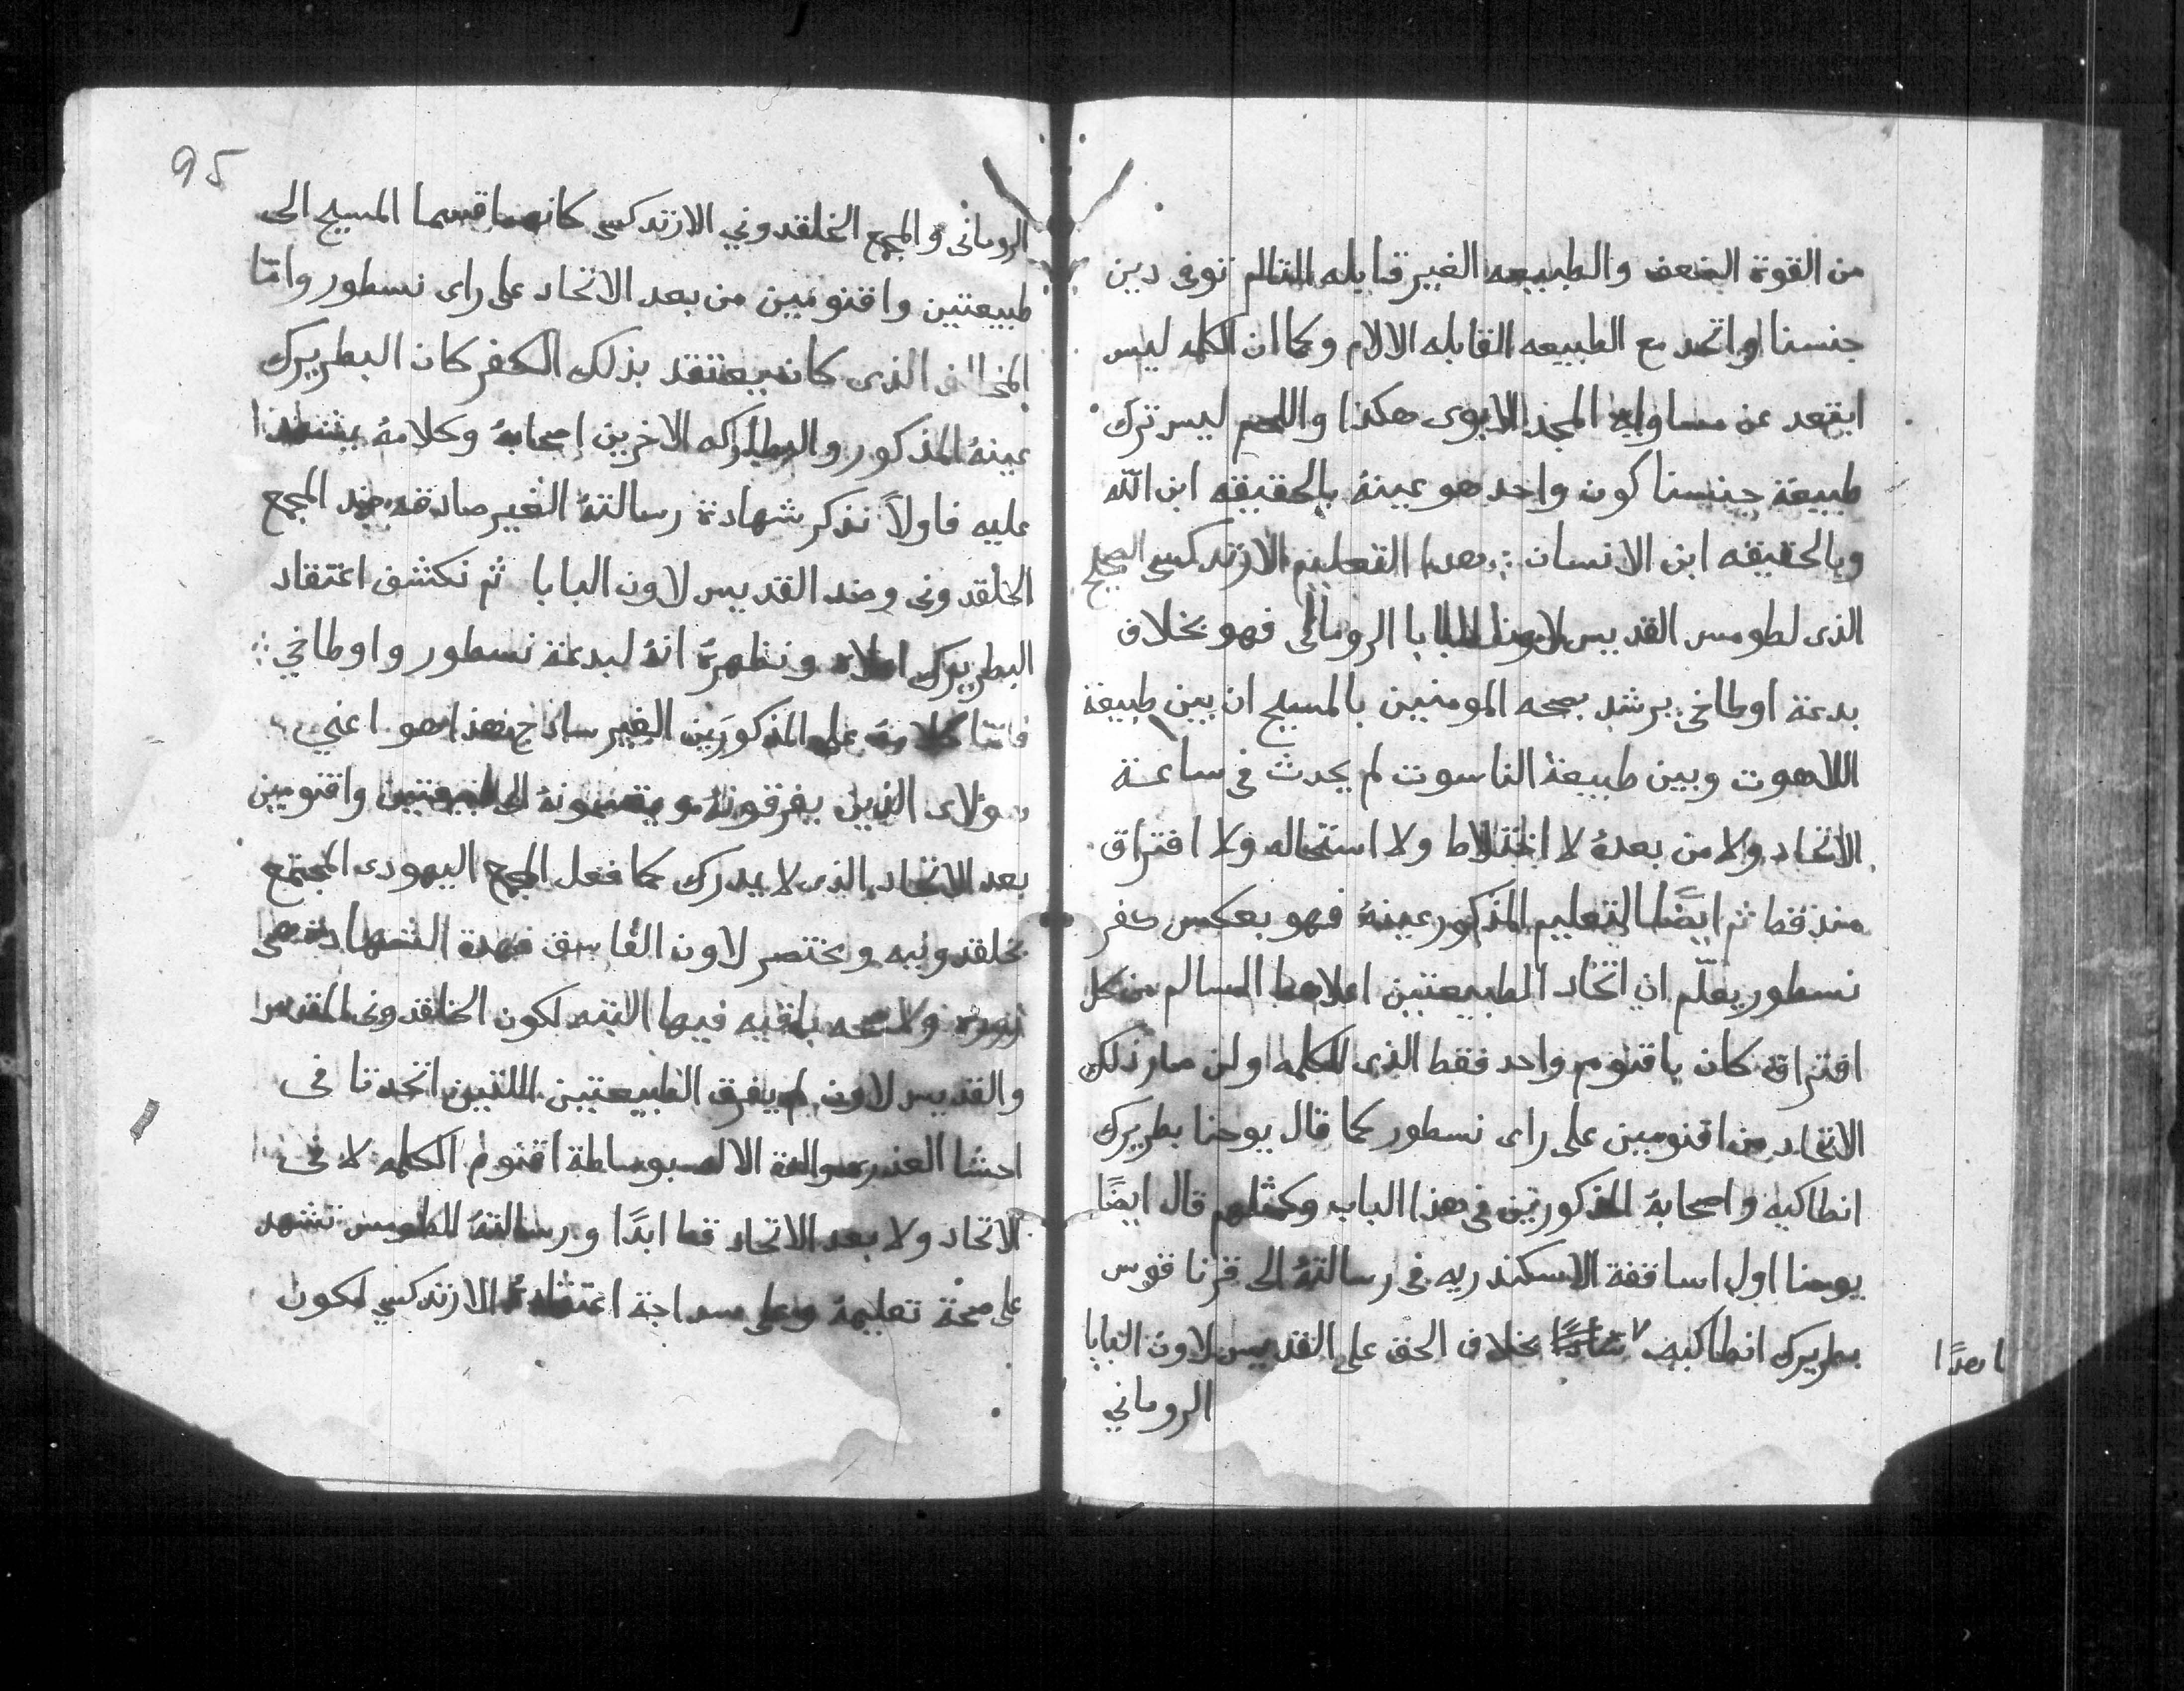 من القوة الضعف والطبيعه الغير قابله التالم توفى دين
جنسنا واتحد مع الطبيعه القابله الالام وكما ان الكلمه ليس
ابتعد عن مساواة المجد الابوى هكذا واللحم ليس ترك
طبيعة جنسنا كون واحد هو عينهُ بالحقيقه ابن الله
وبالحقيقه ابن الانسان ❖ هذا التعليم الارتدكسى الصحيح
الذى لطومس القديس لاون البابا الرومانى فهو بخلاف
بدعة اوطاخى يرشد بصحه المومنين بالمسيح ان بين طبيعة
اللاهوت وبين طبيعة الناسوت لم يحدث فى ساعة
الاتحاد ولا من بعدهُ لا اختلاط ولا استحاله ولا افتراق
منذ قط ثم ايضًا التعليم المذكور عينهُ فهو بعكس كفر
نسطور يعلّم ان اتحاد الطبيعتين السالم من كل
افتراق كان باقنوم واحد فقط الذى للكلمه ولن صار ذلك
الاتحاد من اقنومين على راى نسطور كما قال يوحنا بطريرك
انطاكيه واصحابهُ المذكورين فى هذا الباب وكمثلهم قال ايضًا
يوحنا اول اساقفة الاسكندريه فى رسالتهُ الى قرنا قوس
بطريرك انطاكيه بخلاف الحق على القديس لاون البابا
الرومانى
95
الرومانى والمجمع الخلقدوني الارتدكسى كانهما قسما المسيح الى
طبيعتين واقنومين من بعد الاتحاد على راى نسطور وامّا
المخالف الذى كان يعتقد بذلك الكفر كان البطريرك
عينهُ المذكور والبطاركه الاخرين اصحابهُ وكلامهُ يشهد
عليه فاولاً نذكر شهادة رسالتهُ الغير صادقه ضد المجمع
الخلقدونى وضد القديس لاون البابا ثم نكشف اعتقاد
البطريرك ونظهرهُ انهُ لبدعة نسطور واوطاخي ❖
فامّا كلامهُ على المذكورَين الغير سادج هذا هو اعني
هولاى الذين يفرقونهُ ويقسمونهُ الى طبيعتين واقنومين
بعد الاتحاد الذى لا يدرك كما فعل المجمع اليهودى المجتمع
بخلقدونيه ومختصر لاون الفاسق فهذة الشهادة هى
زوره ولا صحه باقيه فيها البته لكون الخلقدونى المقدس
والقديس لاون لم يفرق الطبيعتين اللتين اتحدتا فى
احشا العذرى والدة الاله بوساطة اقنوم الكلمه لا فى
الاتحاد ولا بعد الاتحاد قط ابدًا ورسالتهُ للطومس تشهد
على صحة تعليمهُ وعلى سداجة اعتقادهُ الارتدكسي لكون